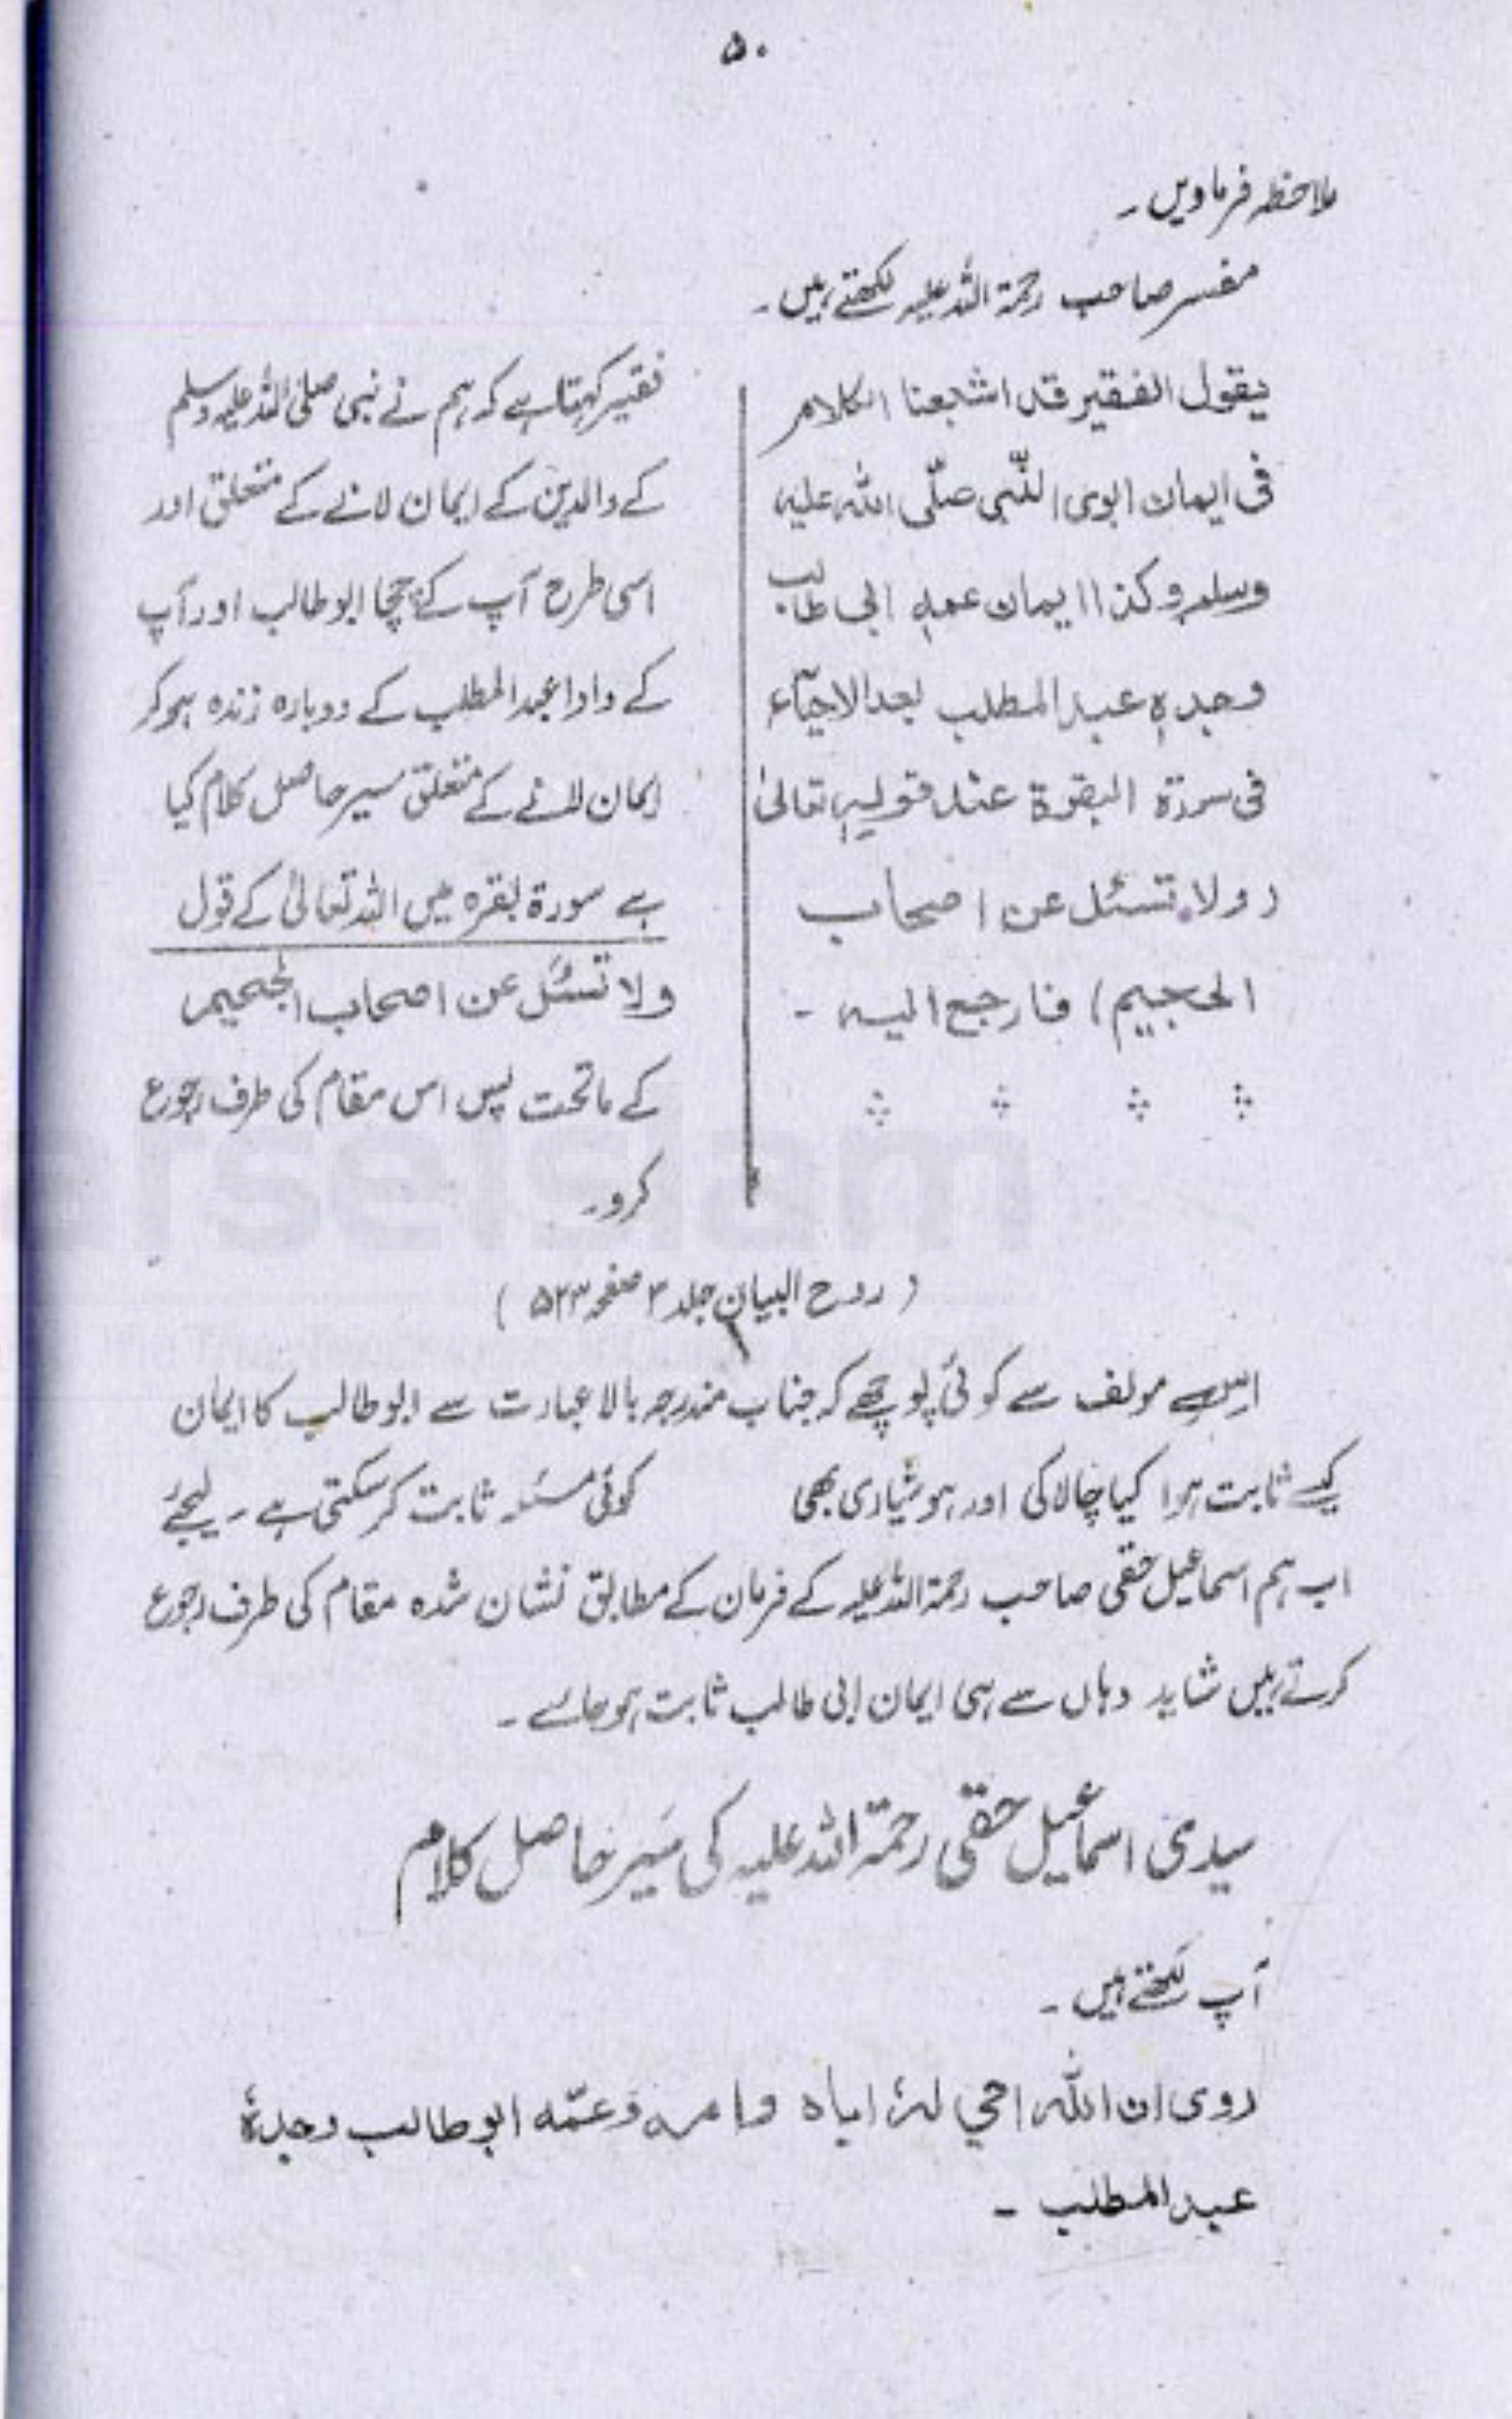 ۵۰
ملاحظہ فرماویں۔
مفسر صاحب رحمۃ اللہ علیہ لکھتے ہیں۔
یقول الفقیر قد اشبعنا الکلام
فی ایمان ابوی النّبی صلّی اللہ علیہ
وسلم وکذا ایمان عمہٖ ابی طالب
وجدہٖ عبد المطلب بعد الاحیآء
فی سورۃ البقرۃ عند قولہٖ تعالیٰ
(ولا تسئل عن اصحاب
الجحیم) فارجع الیہ۔
فقیر کہتا ہے کہ ہم نے نبی صلی اللہ علیہ وسلم
کے والدین کے ایمان لانے کے متعلق اور
اسی طرح آپ کے چچا ابوطالب اور آپ
کے دادا عبدالمطلب کے دوبارہ زندہ ہوکر
ایمان لانے کے متعلق سیر حاصل کلام کیا
ہے سورۃ بقرہ میں اللہ تعالیٰ کے قول
ولا تسئل عن اصحاب الجحیم
کے ماتحت پس اس مقام کی طرف رجوع
کرو۔
(روح البیان جلد ۳ صفحہ ۵۲۳)
اس مولف سے کوئی پوچھے کہ جناب مندرجہ بالا عبارت سے ابوطالب کا ایمان
کیسے ثابت ہوا کیا چالاکی اور ہوشیاری بھی کوئی مسئلہ ثابت کرسکتی ہے۔ لیجئے
اب ہم اسماعیل حقی صاحب رحمۃ اللہ علیہ کے فرمان کے مطابق نشان شدہ مقام کی طرف رجوع
کرتے ہیں شاید وہاں سے ہی ایمان ابی طالب ثابت ہوجائے۔
سیدی اسماعیل حقی رحمۃ اللہ علیہ کی سَیر حاصل کلام
آپ لکھتے ہیں۔
روی ان اللہ احیٰ لہٗ اباہ وامہ وعمّہ ابو طالب وجدہٗ
عبد المطلب۔